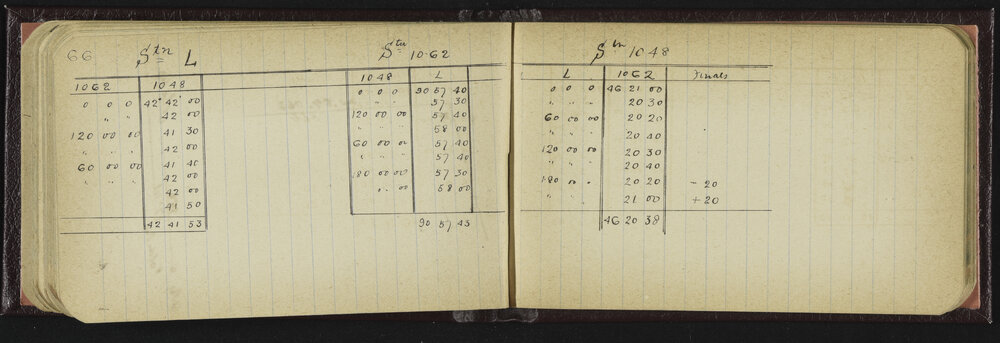 66 Stn L
1062 1048
0 0 0 42° 42' 00
" " 42 00
120 00 00 41 30
" " " 42 00
60 00 00 41 40
" " " 42 00
42 00
41 50
42 41 53
Stn 1062
1048 L
0 0 0 90 57 40
" " 57 30
120 00 00 57 40
" " " 58 00
60 00 00 57 40
" " " 57 40
180 00 00 57 30
" " 00 58 00
90 57 43
Stn 1048
L 1062 Finals
0 0 0 46 21 00
" " 20 30
60 00 00 20 20
" " " 20 40
120 00 00 20 30
" " " 20 40
180 00 " 20 20 - 20
" " 21 00 + 20
46 20 38